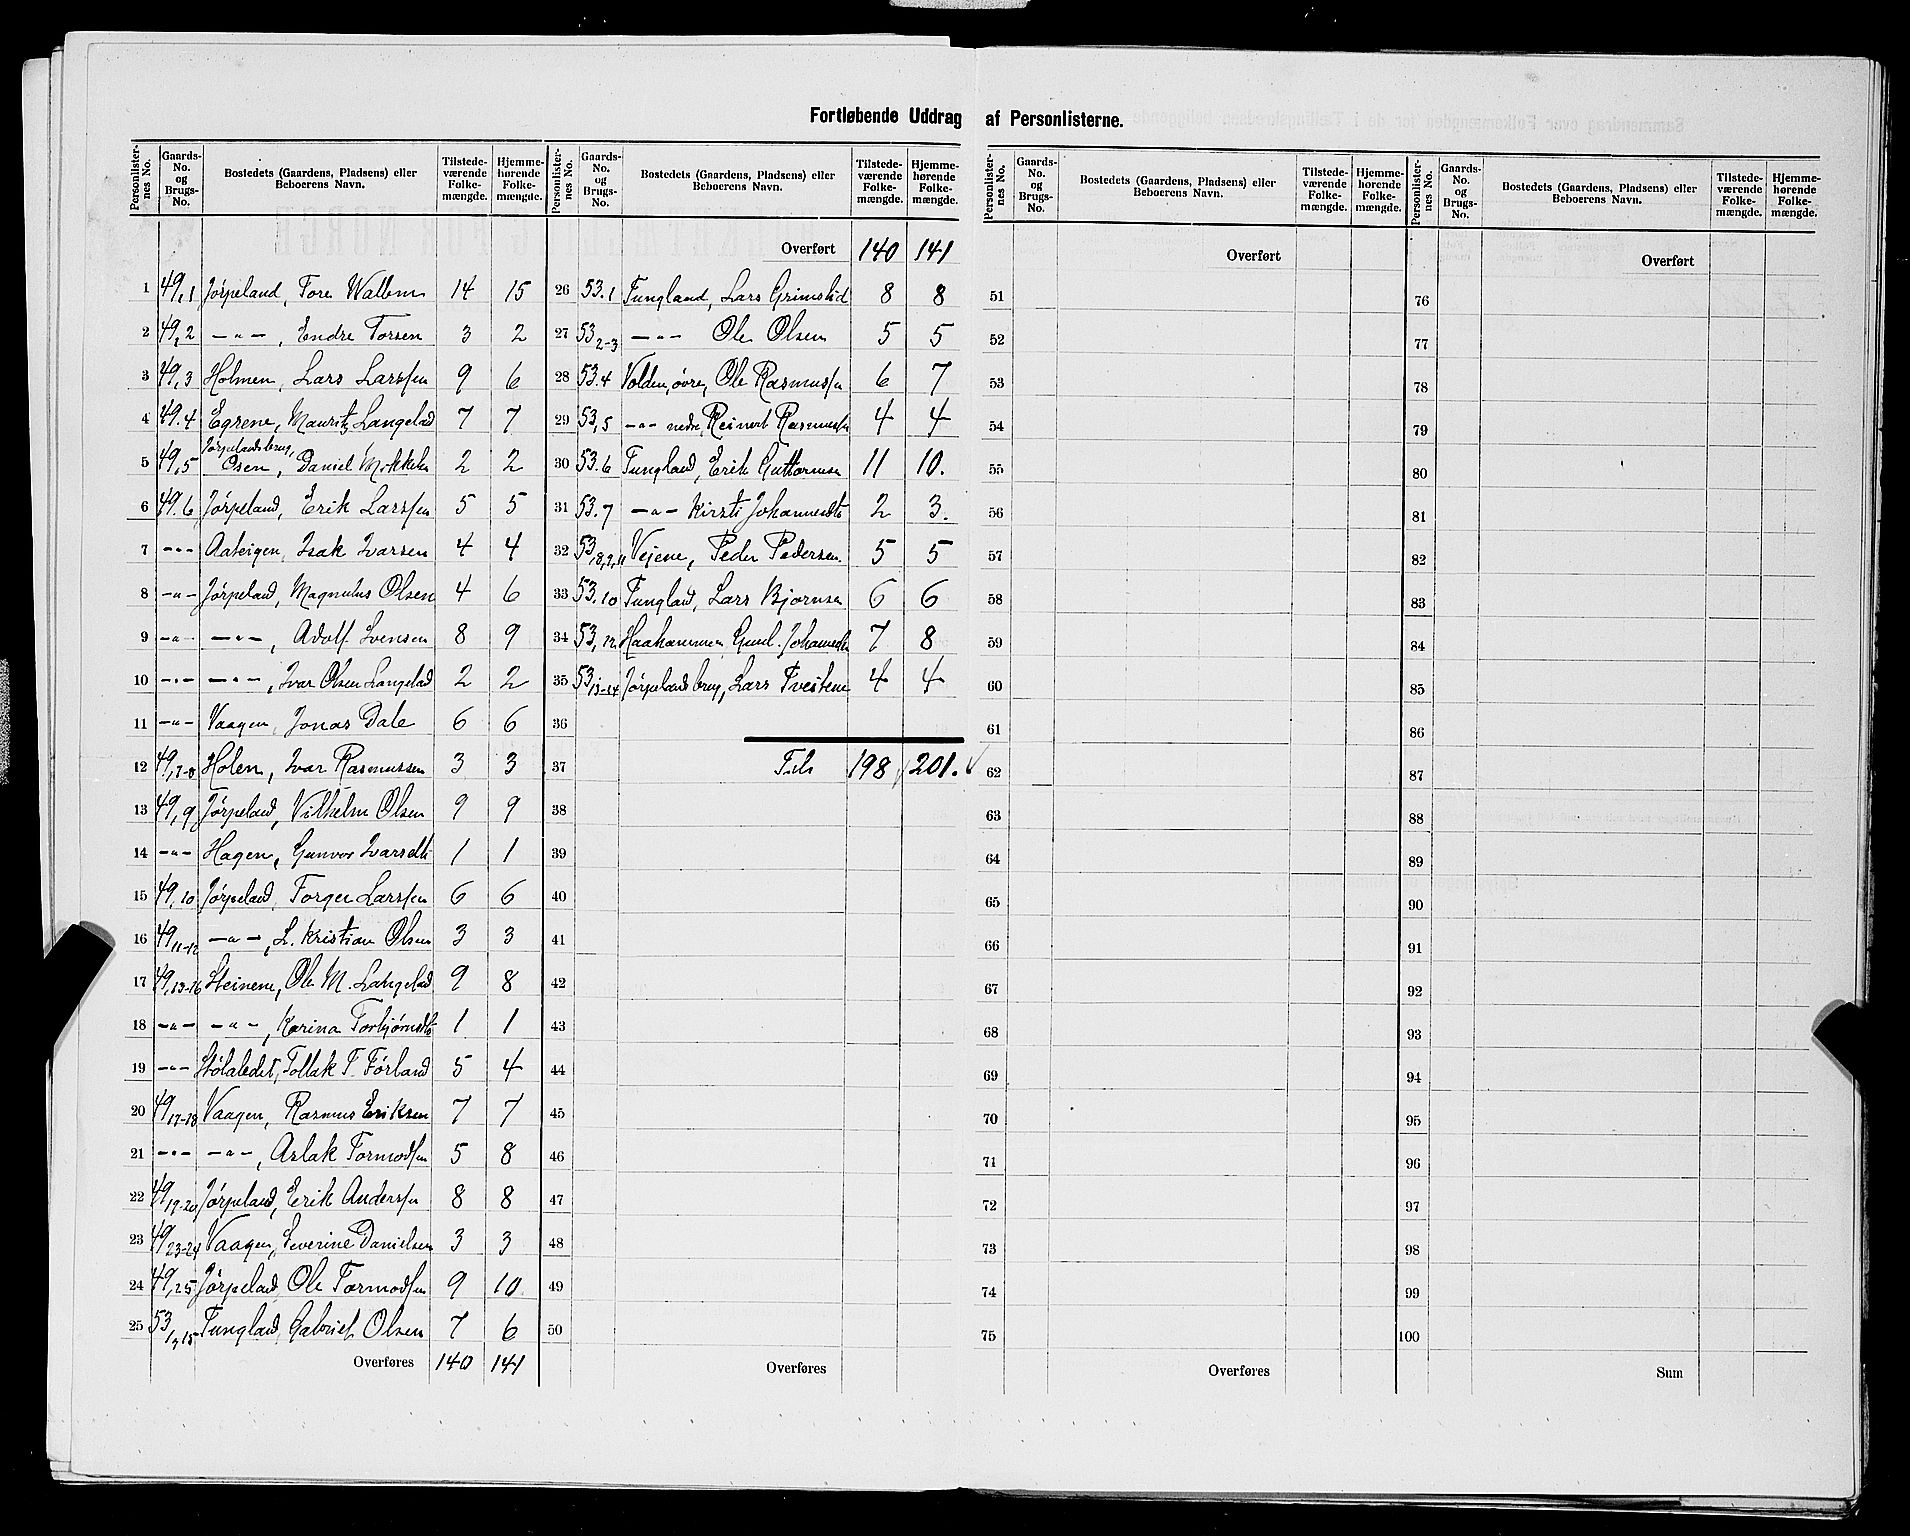 Fortløbende Uddrag af Personlisterne.
Personlister-nes No. Gaards-No. og Brugs-No. Bostedets (Gaardens, Pladsens) eller Beboerens Navn. Tilstede-værende Folke-mængde. Hjemme-hørende Folke-mængde.
1 49,1 Jørpeland, Tore Wallem 14 15
2 49,2 -"-, Endre Torsen 3 2
3 49,3 Holmen, Lars Larssen 9 6
4 49.4 Egrene, Mauritz Langelad 7 7
5 49,5 Jørpelandsbrug, Osen, Daniel Mokkeln 2 2
6 49.6 Jørpeland, Erik Larssen 5 5
7 -"- Aateigen, Isak Ivarsen 4 4
8 -"- Jørpeland, Magnulus Olsen 4 6
9 -"- -"-, Adolf Svensen 8 9
10 -"- -"-, Ivar Olsen Langelad 2 2
11 -"- Vaagen, Jonas Dale 6 6
12 49,7-8 Holen, Ivar Rasmussen 3 3
13 49,9 Jørpeland, Vilhelm Olsen 9 9
14 -"- Hagen, Gunvor Ivarsdtr 1 1
15 49,10 Jørpeland, Torger Larssen 6 6
16 49,11-12 -"-, L. Kristian Olsen 3 3
17 49,13-16 Steinene, Ole M. Langelad 9 8
18 -"- -"-, Karina Torbjørnsdtr 1 1
19 -"- Stølaledet, Tollak T. Førland 5 4
20 49,17-18 Vaagen, Rasmus Eriksen 7 7
21 -"- -"-, Aslak Tormodsen 5 8
22 49,19-20 Jørpeland, Erik Anderssen 8 8
23 49,23-24 Vaagen, Severine Danielsen 3 3
24 49,25 Jørpeland, Ole Tormodsen 9 10
25 53,1,15 Tungland, Gabriel Olsen 7 6
Overføres 140 141
Personlister-nes No. Gaards-No. og Brugs-No. Bostedets (Gaardens, Pladsens) eller Beboerens Navn. Tilstede-værende Folke-mængde. Hjemme-hørende Folke-mængde.
Overført 140 141
26 53.1 Tungland, Lars Grimslid 8 8
27 53,2-3 -"- Ole Olsen 5 5
28 53.4 Volden, øvre, Ole Rasmussen 6 7
29 53,5 -"- nedre, Reinert Rasmussen 4 4
30 53.6 Tungland, Erik Guttormsen 11 10.
31 53.7 -"- Kirsti Johannesdtr 2 3.
32 53,8,9,11 Vejene, Peder Pedersen 5 5
33 53.10 Tungland, Lars Bjørnsen 6 6
34 53,12 Haahammer, Gunl. Johannesdtr 7 8
35 53,13-14 Jørpelandsbrug, Lars Tveitene 4 4
36
37 Tils 198 201.
38
39
40
41
42
43
44
45
46
47
48
49
50
Overføres
Personlister-nes No. Gaards-No. og Brugs-No. Bostedets (Gaardens, Pladsens) eller Beboerens Navn. Tilstede-værende Folke-mængde. Hjemme-hørende Folke-mængde.
Overført
51
52
53
54
55
56
57
58
59
60
61
62
63
64
65
66
67
68
69
70
71
72
73
74
75
Overføres
Personlister-nes No. Gaards-No. og Brugs-No. Bostedets (Gaardens, Pladsens) eller Beboerens Navn. Tilstede-værende Folke-mængde. Hjemme-hørende Folke-mængde.
Overført
76
77
78
79
80
81
82
83
84
85
86
87
88
89
90
91
92
93
94
95
96
97
98
99
100
Sum